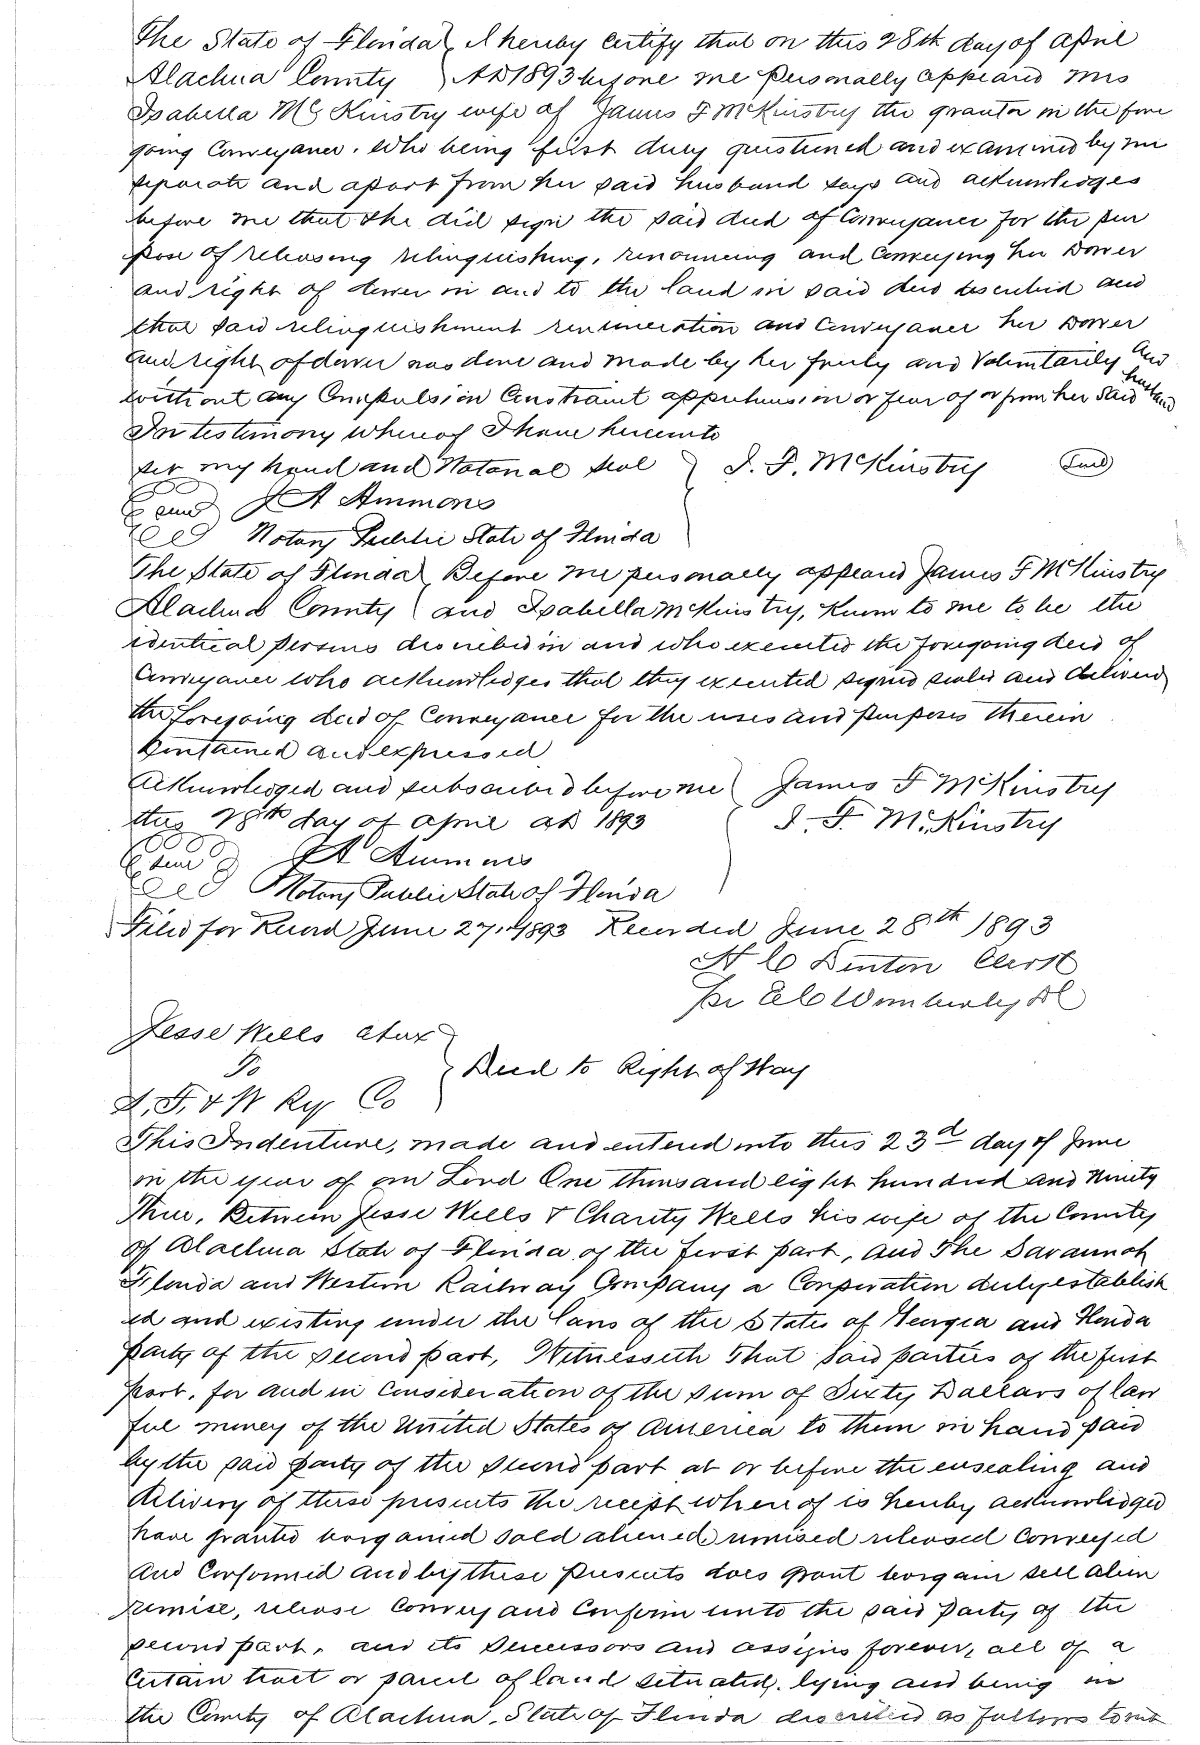 The State of Florida } I hereby certify that on this 28th day of April
Alachua County } AD 1893 before me personally appeared Mrs
Isabella McKinstry wife of James F McKinstry the grantor in the fore
going Conveyance. Who being first duly questioned and examined by me
separate and apart from her said husband says and acknowledges
before me that she did sign the said deed of Conveyance for the pur
pose of releasing relinquishing, renouncing and Conveying her Dower
and right of dower in and to the land in said deed described and
that said relinquishment renunciation and Conveyance her Dower
and right of dower was done and made by her freely and Voluntarily and
without any Compulsion Constraint apprehension or fear of or from her said husband
In testimony whereof I have hereunto
set my hand and Notarial seal } I. F. McKinstry (Seal)
Seal J A Ammons
Notary Public State of Florida
The State of Florida } Before me personally appeared James F McKinstry
Alachua County } and Isabella McKinstry, known to me to be the
identical persons described in and who executed the foregoing deed of
Conveyance who acknowledges that they executed signed sealed and delivered
the foregoing deed of Conveyance for the uses and purposes therein
Contained and expressed
Acknowledged and subscribed before me } James F McKinstry
this 28th day of April AD 1893 } I. F. McKinstry
Seal J A Ammons
Notary Public State of Florida
Filed for Record June 27, 1893 Recorded June 28th 1893
H C Denton Clerk
Per E C Wimberly DC
Jesse Wells et ux
To } Deed to Right of Way
S. F. & W Ry Co
This Indenture, made and entered into this 23d day of June
in the year of our Lord One thousand eight hundred and Ninety
Three, Between Jesse Wells & Charity Wells his wife of the County
of Alachua State of Florida of the first part, and The Savannah
Florida and Western Railway Company a Corporation duly establish
ed and existing under the laws of the States of Georgia and Florida
party of the second part, Witnesseth That said parties of the first
part, for and in consideration of the sum of Sixty Dollars of law
ful money of the United States of America to them in hand paid
by the said party of the second part at or before the ensealing and
delivery of these presents the receipt whereof is hereby acknowledged
have granted bargained sold aliened remised released Conveyed
and Confirmed and by these presents does grant bargain sell alien
remise, release Convey and Confirm unto the said party of the
second part, and its successors and assigns forever, all of a
Certain tract or parcel of land situated, lying and being in
the County of Alachua, State of Florida described as follows towit